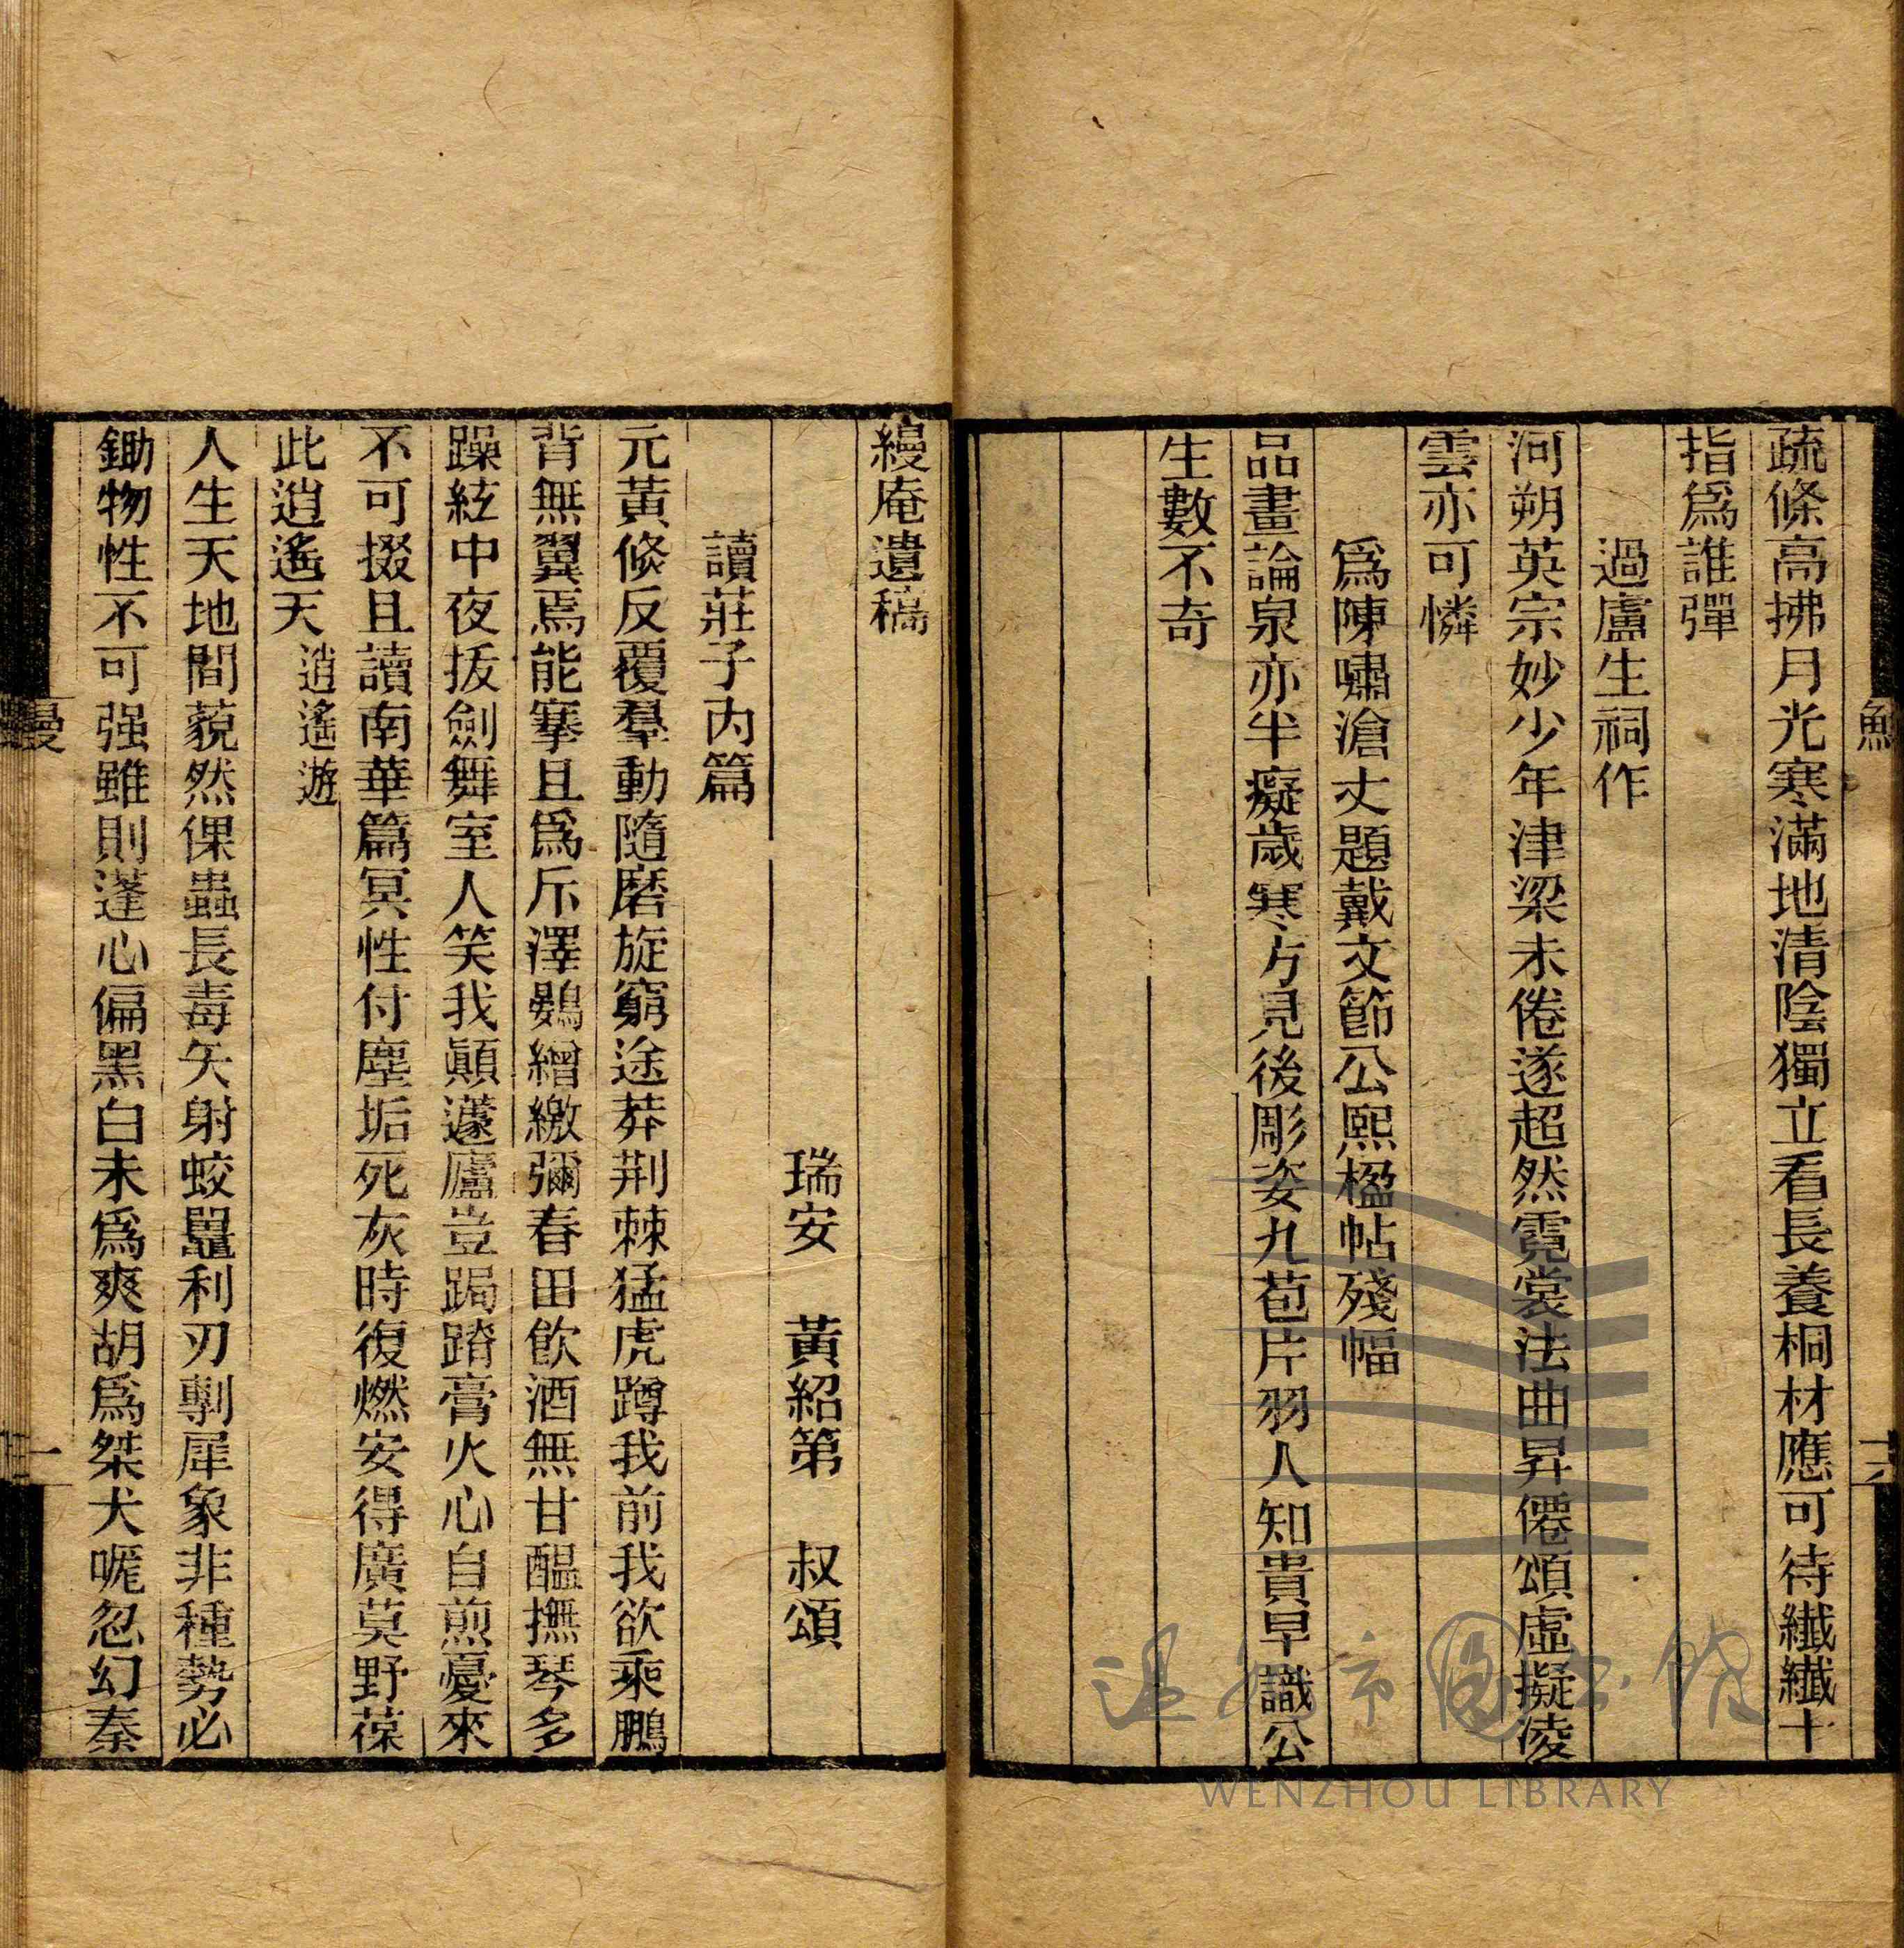 疏條高拂月光寒滿地清陰獨立看長養桐材應可待纖纖十
指爲誰彈
過盧生祠作
河朔英宗妙少年津梁未倦遂超然霓裳法曲昇僊頌虛擬凌
雲亦可憐
爲陳嘯滄丈題戴文節公熙楹帖殘幅
品畫論泉亦半癡歲寒方見後彫姿九苞片羽人知貴早識公
生數不奇
十六
縵庵遺稿
瑞安 黃紹第 叔頌
讀莊子內篇
元黃倏反覆羣動隨磨旋窮途莽荆棘猛虎蹲我前我欲乘鵬
背無翼焉能搴且爲斥澤鷃繒繳彌春田飲酒無甘醞撫琴多
躁絃中夜拔劍舞室人笑我顚蘧廬豈跼蹐膏火心自煎憂來
不可掇且讀南華篇冥性付塵垢死灰時復燃安得廣莫野葆
此逍遙天 逍遙遊
人生天地間藐然倮蟲長毒矢射蛟鼉利刃剸犀象非種勢必
鋤物性不可强雖則蓬心偏黑白未爲爽胡爲桀犬嗁忽幻秦
一
温州市图书馆
WENZHOU LIBRARY